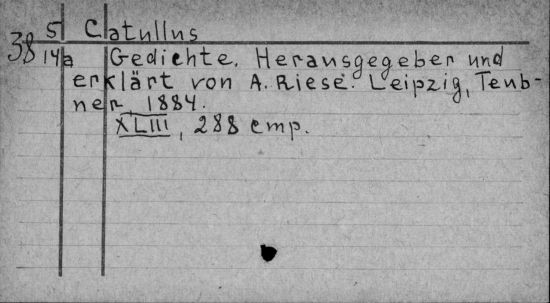 38 5 Clatullus
14a Gedichte. Herausgegeber und
erklärt von A. Riese. Leipzig, Teub-
ner, 1884.
XLIII, 288 стр.